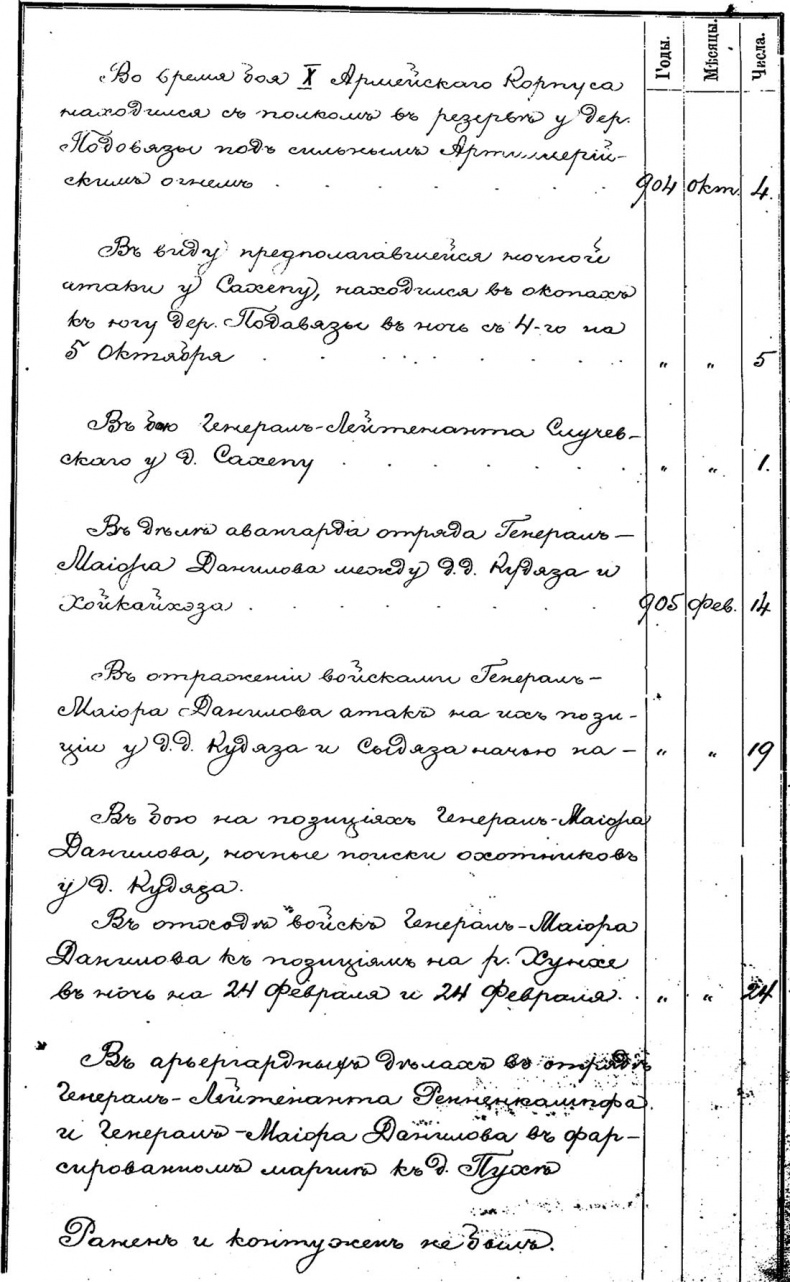 Годы. Мѣсяцы. Числа.
Во время боя X Армейскаго Корпуса
находился съ полкомъ въ резервѣ у дер.
Подовязы подъ сильнымъ Артиллерій-
скимъ огнемъ . . . . . . . 904 Окт. 4.
Въ виду предполагавшейся ночной
атаки у Сахепу, находился въ окопахъ
къ югу дер. Подавязы въ ночь съ 4-го на
5 Октября . . . . . . . . „ „ 5
Въ бою Генералъ-Лейтенанта Случев-
скаго у д. Сахепу . . . . . . „ „ 1.
Въ дѣлѣ авангарда отряда Генералъ-
Маіора Данилова между д.д. Кудяза и
Хойкайхэза . . . . . . . 905 Фев. 14
Въ отраженіи войсками Генералъ-
Маіора Данилова атакъ на ихъ пози-
ціи у д.д. Кудяза и Сыдяза начью на - „ „ 19
Въ бою на позиціяхъ Генералъ-Маіора
Данилова, ночные поиски охотниковъ
у д. Кудяза.
Въ отходѣ войскъ Генералъ-Маіора
Данилова къ позиціямъ на р. Хунхе
въ ночь на 24 Февраля и 24 Февраля. . „ „ 24
Въ арьергардныхъ дѣлахъ въ отрядѣ
Генералъ-Лейтенанта Ренненкампфа
и Генералъ-Маіора Данилова въ фар-
сированномъ маршѣ къ д. Пухѣ
Раненъ и контуженъ не былъ.